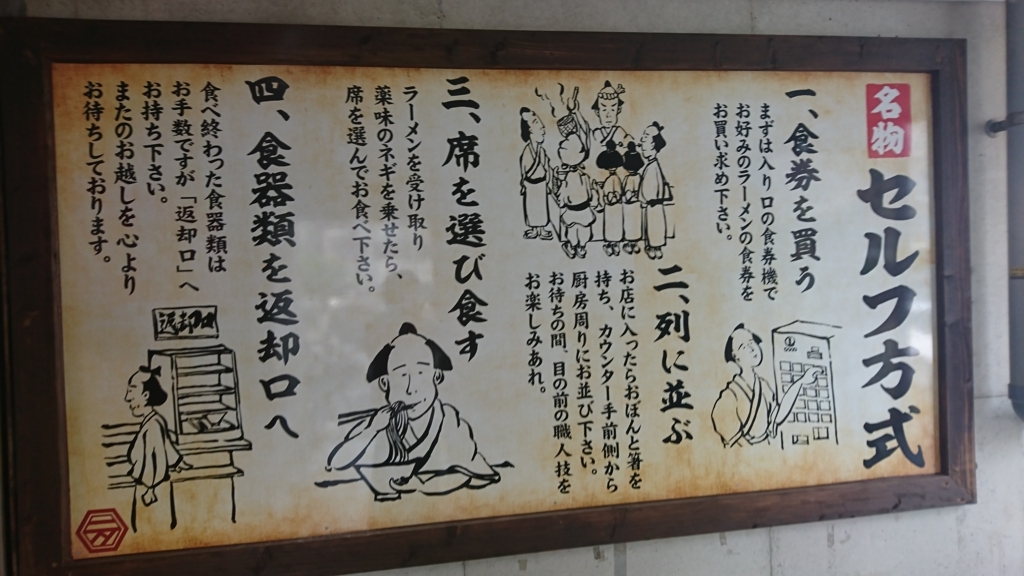 名物
セルフ方式
一、食券を買う
まずは入り口の食券機で
お好みのラーメンの食券を
お買い求め下さい。
二、列に並ぶ
お店に入ったらおぼんと箸を
持ち、カウンター手前側から
厨房周りにお並び下さい。
お待ちの間、目の前の職人技を
お楽しみあれ。
三、席を選び食す
ラーメンを受け取り
薬味のネギを乗せたら、
席を選んでお食べ下さい。
四、食器類を返却口へ
食べ終わった食器類は
お手数ですが「返却口」へ
お持ち下さい。
またのお越しを心より
お待ちしております。
返却口